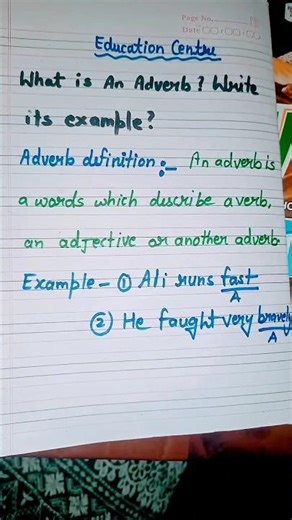 Page No.
Date
Education Centre
What is An Adverb? Write
its example?
Adverb definition:- An adverb is
a words which describe a verb,
an adjective or another adverb.
Example - ① Ali runs fast
A
② He faught very bravely
A